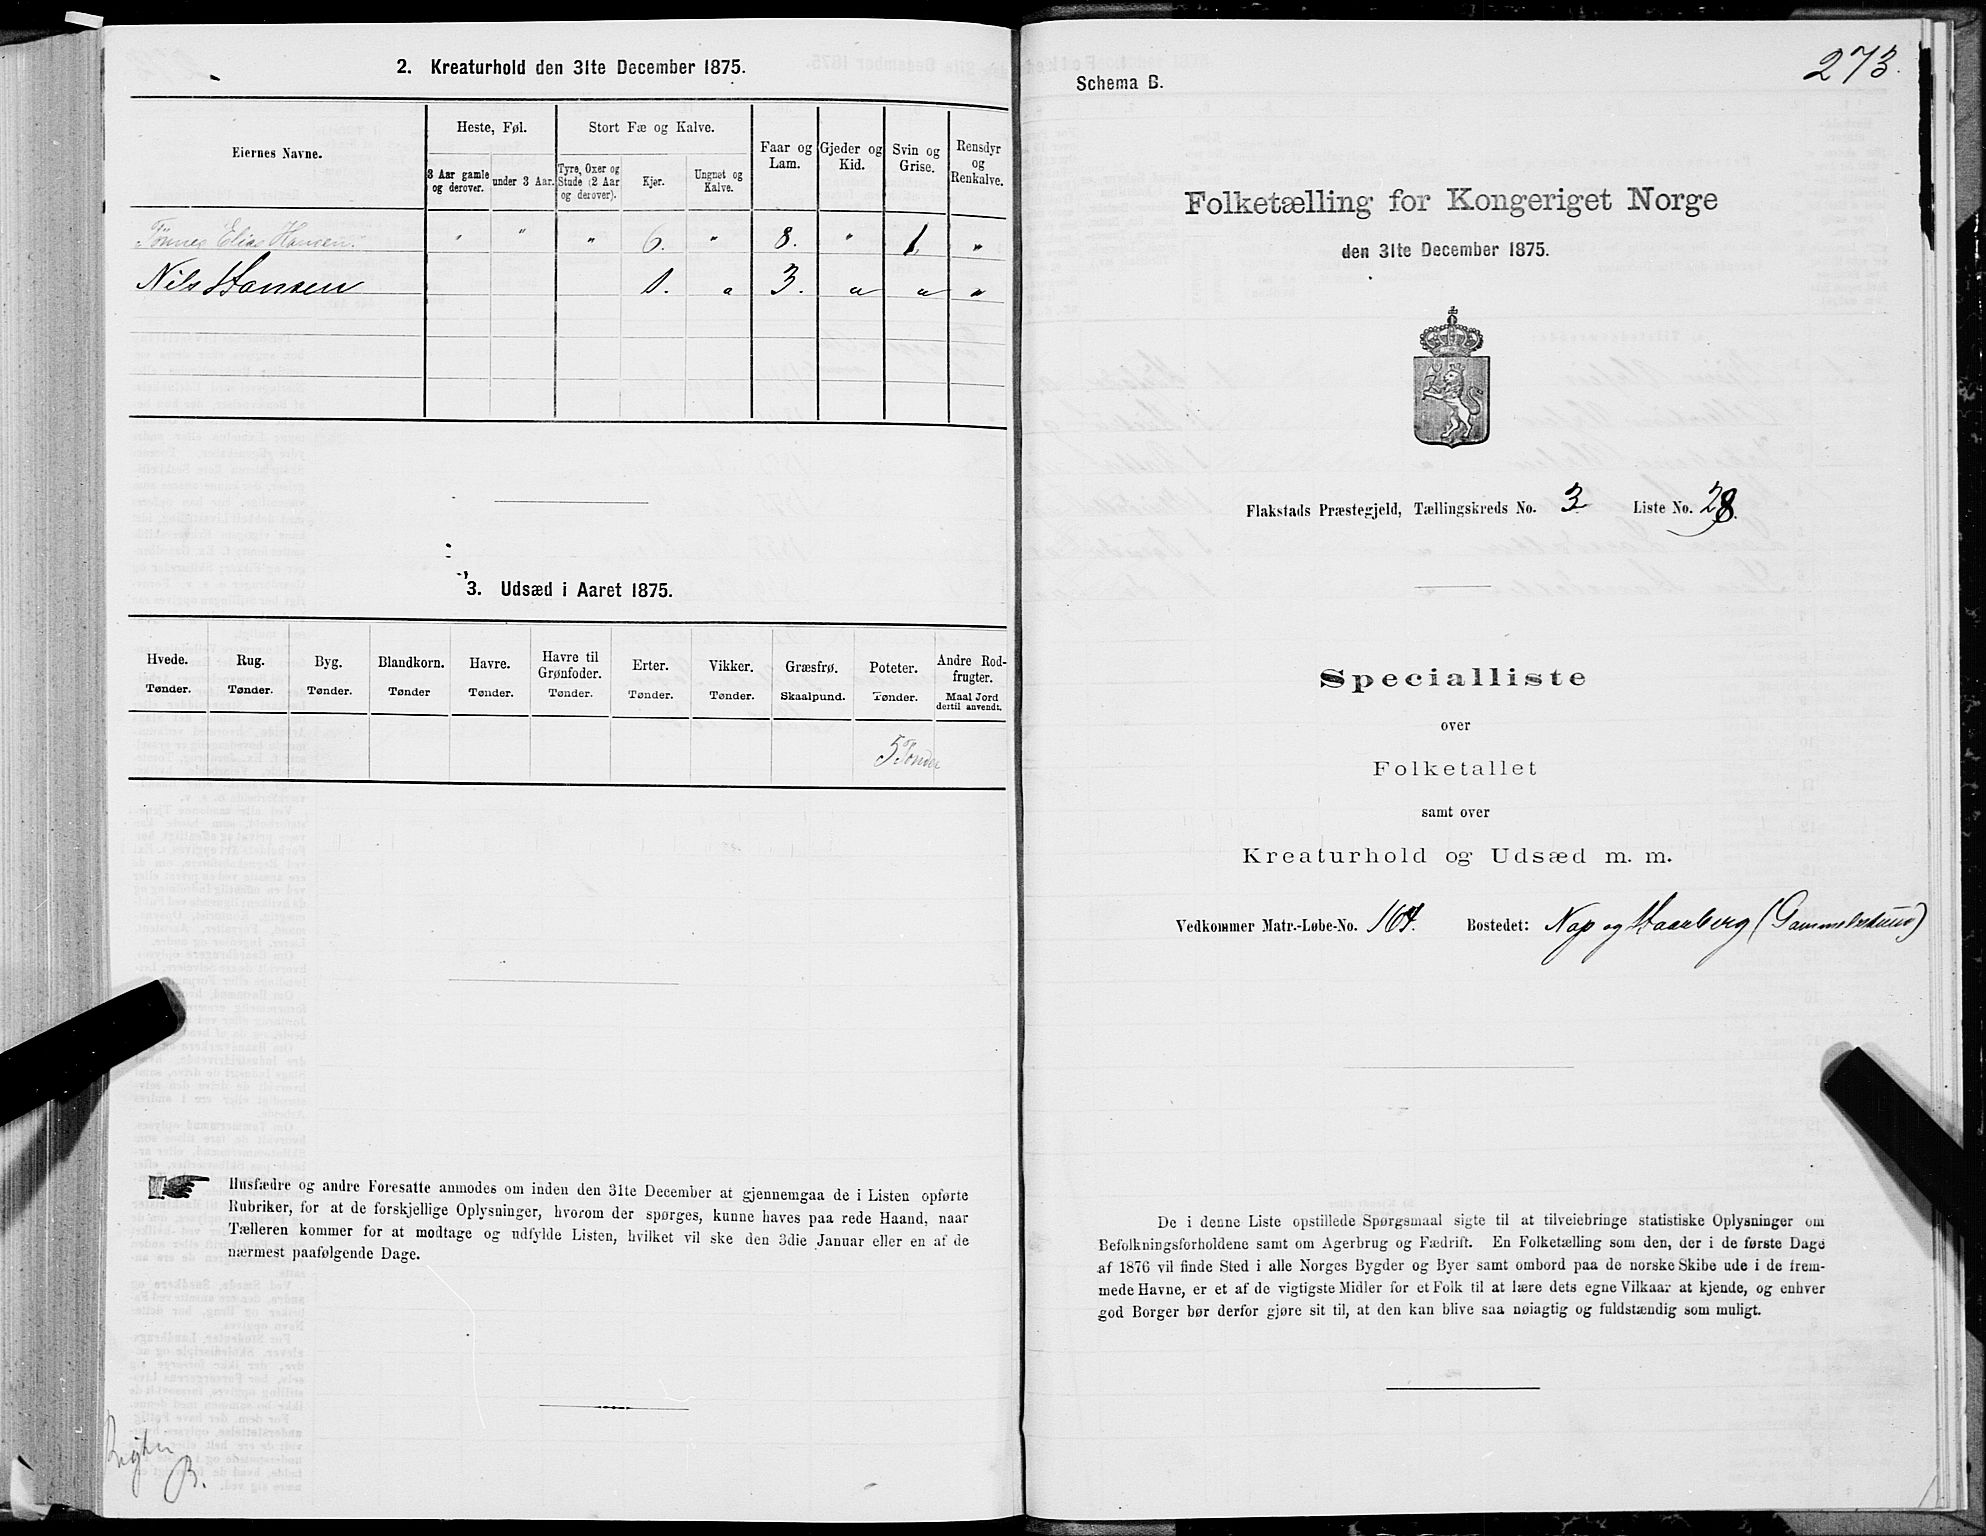 2. Kreaturhold den 31te December 1875.
Eiernes Navne.
Heste, Føl.
Stort Fæ og Kalve.
Faar og Lam.
Gjeder og Kid.
Svin og Grise.
Rensdyr og Renkalve.
3 Aar gamle og derover.
under 3 Aar.
Tyre, Oxer og Stude (2 Aar og derover).
Kjør.
Ungnet og Kalve.
Tönnes Elias Hansen. " " " 6. " 8. " 1. "
Nils Hansen 1. " 3. " " "
3. Udsæd i Aaret 1875.
Hvede. Rug. Byg. Blandkorn. Havre. Havre til Grønfoder. Erter. Vikker. Græsfrø. Poteter. Andre Rodfrugter.
Tønder. Tønder. Tønder. Tønder Tønder. Tønder. Tønder. Tønder. Skaalpund. Tønder. Maal Jord dertil anvendt.
5 Tønder
Husfædre og andre Foresatte anmodes om inden den 31te December at gjennemgaa de i Listen opførte
Rubriker, for at de forskjellige Oplysninger, hvorom der spørges, kunne haves paa rede Haand, naar
Tælleren kommer for at modtage og udfylde Listen, hvilket vil ske den 3die Januar eller en af de
nærmest paafølgende Dage.
B.
273.
Schema B.
Folketælling for Kongeriget Norge
den 31te December 1875.
Flakstads Præstegjeld, Tællingskreds No. 3 Liste No. 28.
Specialliste
over
Folketallet
samt over
Kreaturhold og Udsæd m. m.
Vedkommer Matr.-Løbe-No. 164. Bostedet: Nap og Haarberg (Gammelstuns)
De i denne Liste opstillede Spørgsmaal sigte til at tilveiebringe statistiske Oplysninger om
Befolkningsforholdene samt om Agerbrug og Fædrift. En Folketælling som den, der i de første Dage
af 1876 vil finde Sted i alle Norges Bygder og Byer samt ombord paa de norske Skibe ude i de frem-
mede Havne, er et af de vigtigste Midler for et Folk til at lære dets egne Vilkaar at kjende, og enhver
god Borger bør derfor gjøre sit til, at den kan blive saa nøiagtig og fuldstændig som muligt.